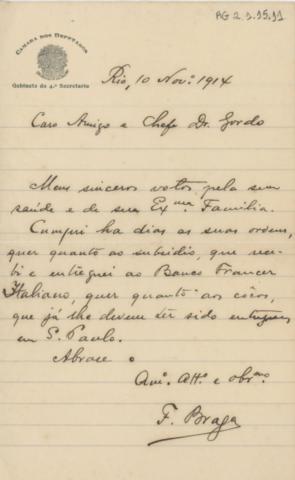 AG 2.3.15.11
CAMARA DOS DEPUTADOS
Gabinete do 4.º Secretario
Rio, 10 Nov.º 1914
Caro Amigo e Chefe Dr. Gordo
Meus sinceros votos pela sua
saúde e de sua Ex.ma Familia.
Cumpri ha dias as suas ordens,
quer quanto ao subsidio, que rece-
bi e entreguei ao Banco Francez
Italiano, quer quanto aos côcos,
que já lhe devem ter sido entregues
em S. Paulo.
Abrace o
Am.º Att.º e obr.mo
F. Braga